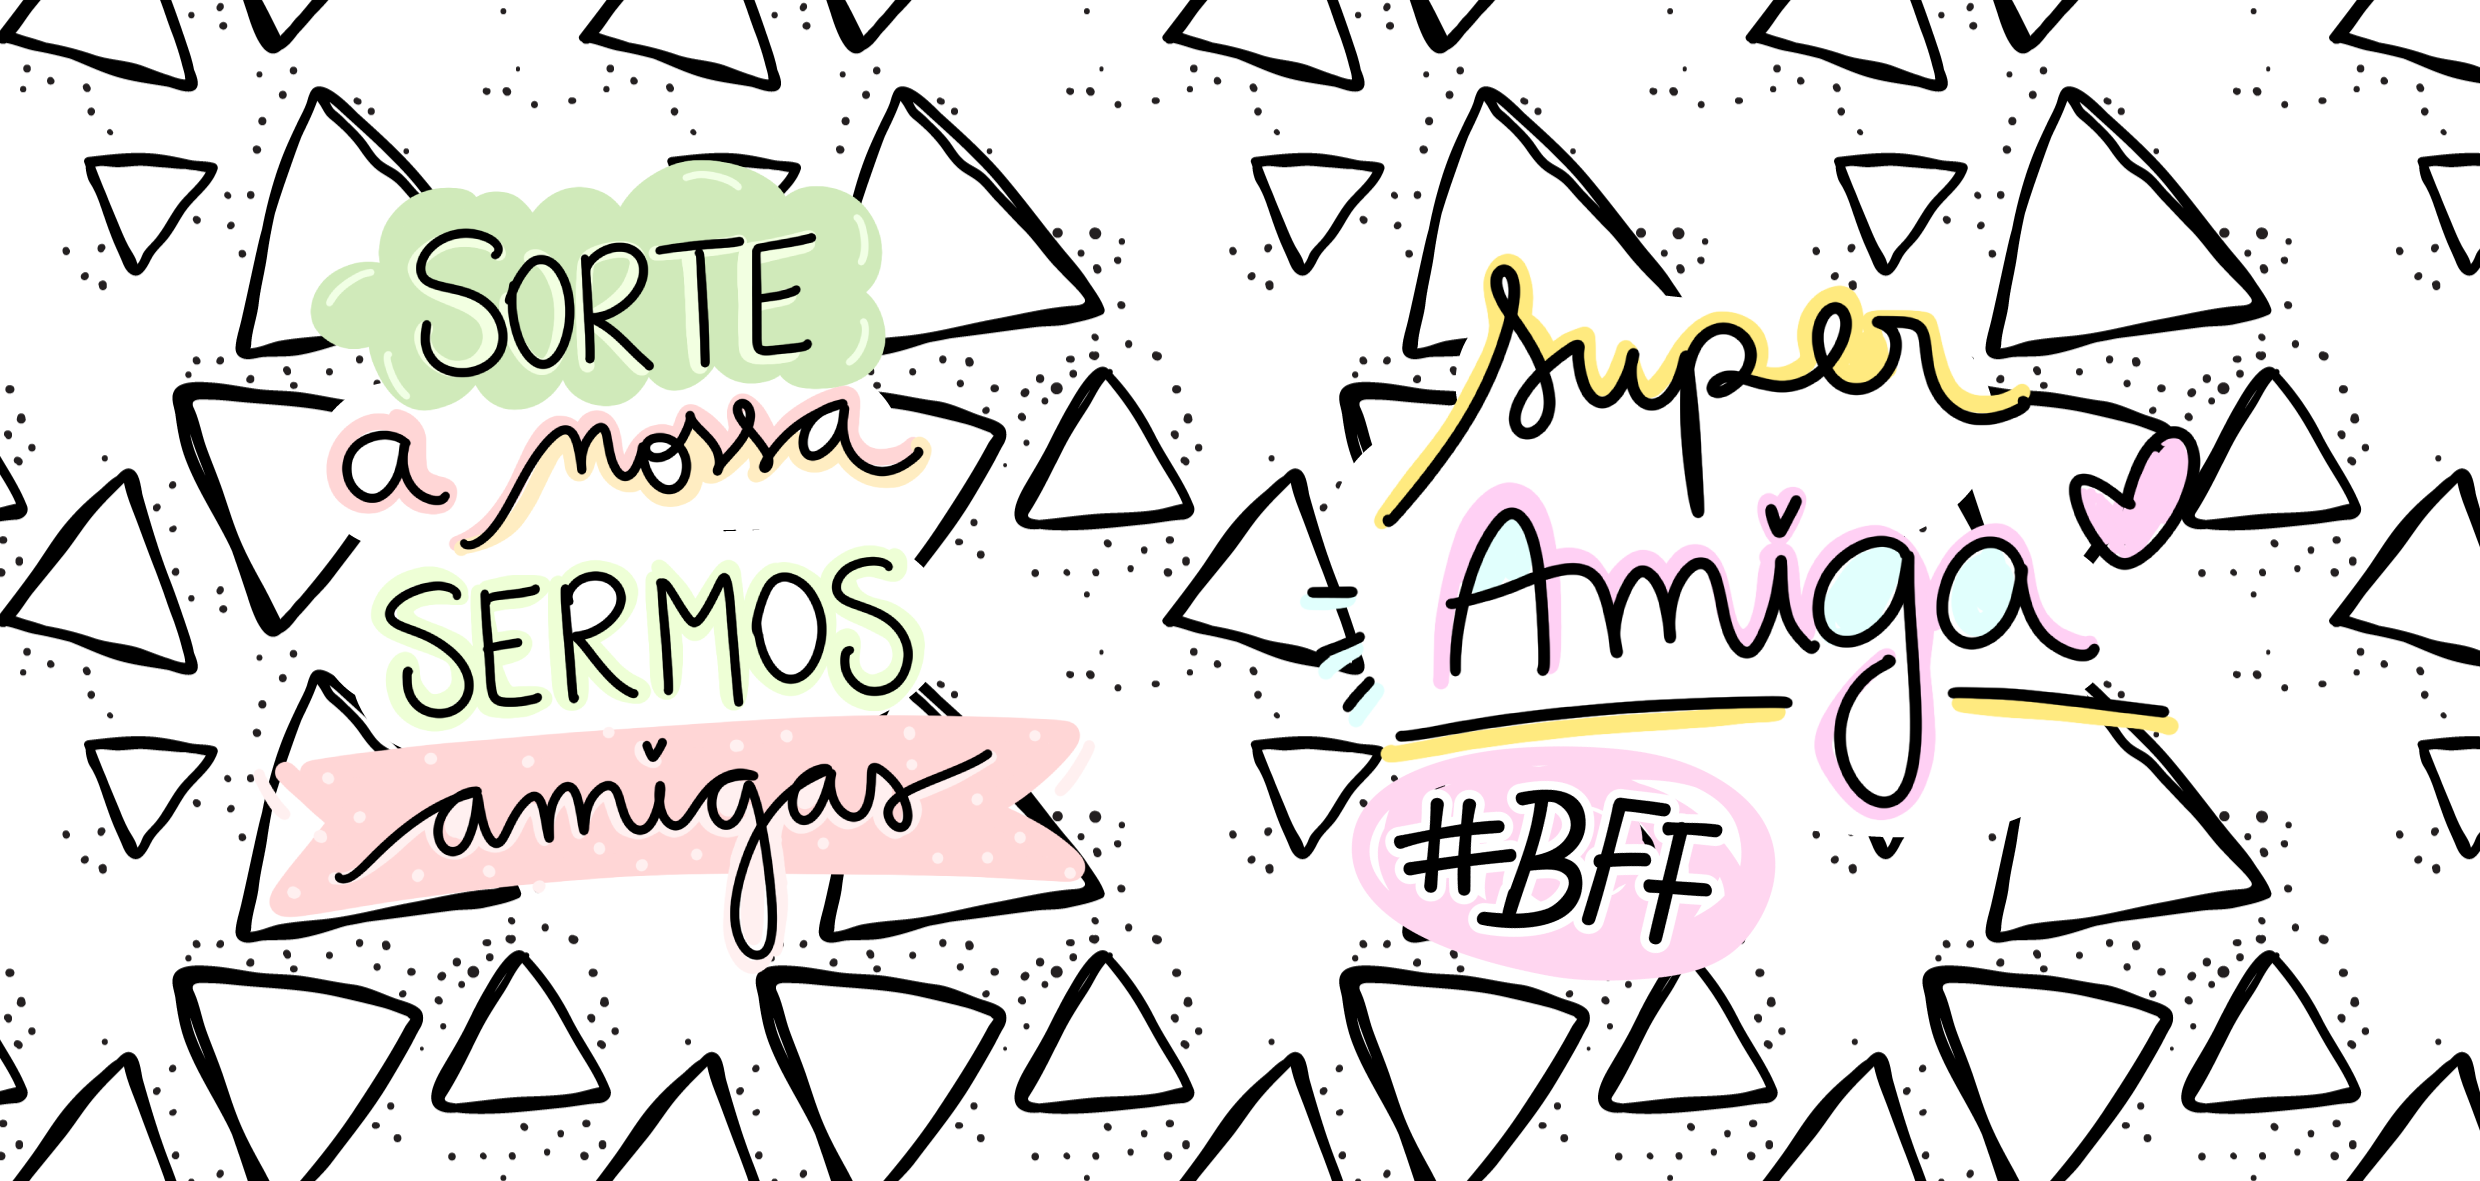 SORTE
a nossa
SERMOS
amigas
Super
Amiga
#BFF